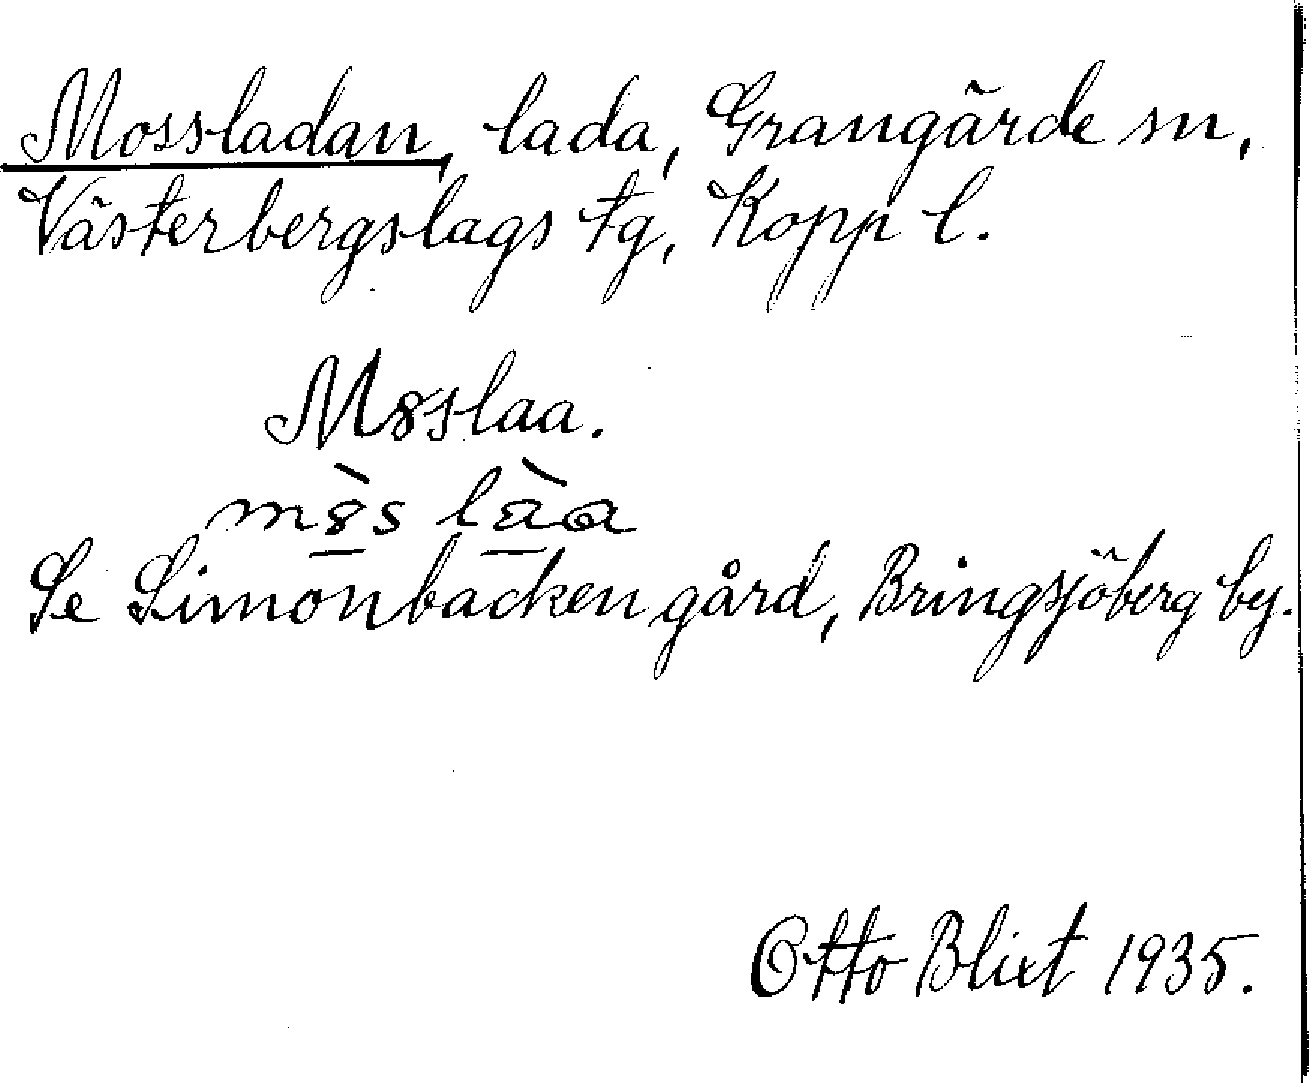 Mossladan, lada, Grangärde sn,
Västerbergslags tg, Kopp l.
M8slaa.
m8̲̀s là̲a
Se Simonbacken gård, Bringsjöberg by.
Otto Blixt 1935.